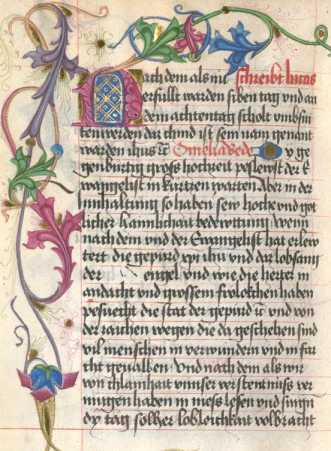 Nach dem als nu schreibt lucas
erfullt warden siben tag und an
dem achtentag scholt umbsni
ten werden daz chind ist sein nam genant
warden ihus Omelia bede
gegenburtig gross hochzeit posleust der E
wangelist in kurtzen warten Aber in der
innhaltung so haben sew hoche und got
licher haimlichait bedewttung Wenn
nach dem und der Ewangelist hat erlew
tert die gepurd xpi ihu und daz lobsang
der engel und wie die herter in
andacht und grossem frolokchen haben
pesuecht die stat der gepurd und von
der zaichen wegen die da geschehen sind
vil menschen in verwundern und in far
cht gevallen Und nach dem als wir
von chlainhait unnser verstentnuss ver
mugen haben in mess lesen und singen
dy tag solher lobleichkait volbracht